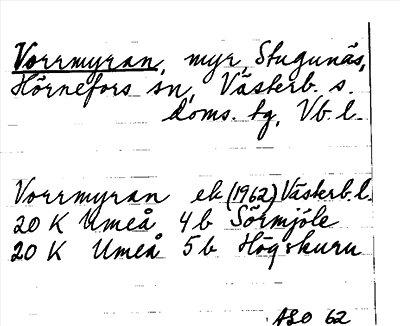 Vorrmyran, myr, Stugunäs,
Hörnefors sn, Västerb. s.
doms. tg, Vb. l.
Vorrmyran ek (1962) Västerb. l.
20 K Umeå 4b Sörmjöle
20 K Umeå 5b Högskuru
ASO 62